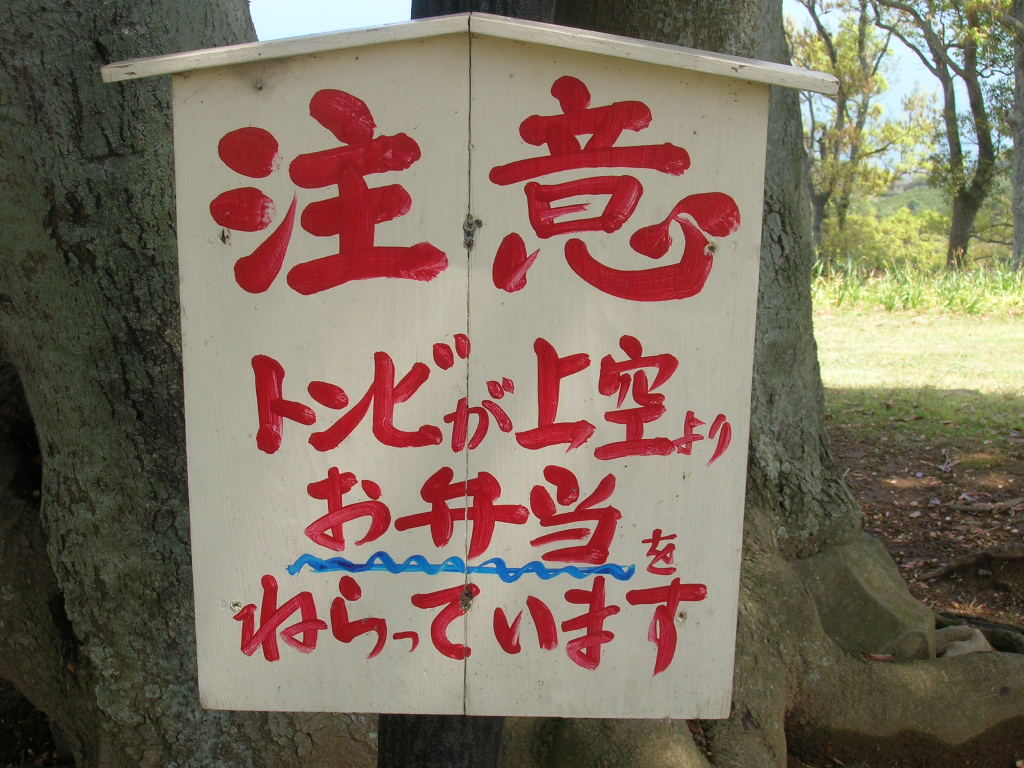 注意
トンビが上空より
お弁当を
ねらっています